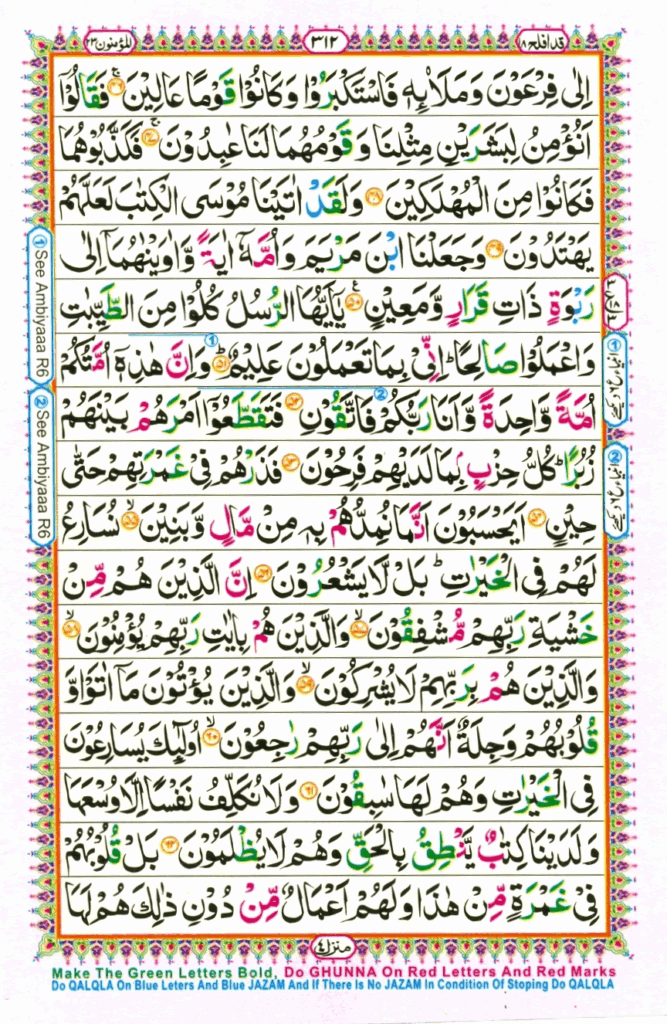 قد افلح ١٨
٣١٢
المؤمنون ٢٣
اِلٰى فِرْعَوْنَ وَمَلَا۟ىِٕهٖ فَاسْتَكْبَرُوْا وَكَانُوْا قَوْمًا عَالِيْنَ ۚ۝٤٦ فَقَالُوْۤا
اَنُؤْمِنُ لِبَشَرَيْنِ مِثْلِنَا وَقَوْمُهُمَا لَنَا عٰبِدُوْنَ ۚ۝٤٧ فَكَذَّبُوْهُمَا
فَكَانُوْا مِنَ الْمُهْلَكِيْنَ ۝٤٨ وَلَقَدْ اٰتَيْنَا مُوْسَى الْكِتٰبَ لَعَلَّهُمْ
يَهْتَدُوْنَ ۝٤٩ وَجَعَلْنَا ابْنَ مَرْيَمَ وَاُمَّهٗۤ اٰيَةً وَّاٰوَيْنٰهُمَاۤ اِلٰى
رَبْوَةٍ ذَاتِ قَرَارٍ وَّمَعِيْنٍ ۝٥٠ يٰۤاَيُّهَا الرُّسُلُ كُلُوْا مِنَ الطَّيِّبٰتِ
وَاعْمَلُوْا صَالِحًا ؕ اِنِّيْ بِمَا تَعْمَلُوْنَ عَلِيْمٌ ؕ۝٥١ وَاِنَّ هٰذِهٖۤ اُمَّتُكُمْ
اُمَّةً وَّاحِدَةً وَّاَنَا رَبُّكُمْ فَاتَّقُوْنِ ۝٥٢ فَتَقَطَّعُوْۤا اَمْرَهُمْ بَيْنَهُمْ
زُبُرًا ؕ كُلُّ حِزْبٍۭ بِمَا لَدَيْهِمْ فَرِحُوْنَ ۝٥٣ فَذَرْهُمْ فِيْ غَمْرَتِهِمْ حَتّٰى
حِيْنٍ ۝٥٤ اَيَحْسَبُوْنَ اَنَّمَا نُمِدُّهُمْ بِهٖ مِنْ مَّالٍ وَّبَنِيْنَ ۙ۝٥٥ نُسَارِعُ
لَهُمْ فِي الْخَيْرٰتِ ؕ بَلْ لَّا يَشْعُرُوْنَ ۝٥٦ اِنَّ الَّذِيْنَ هُمْ مِّنْ
خَشْيَةِ رَبِّهِمْ مُّشْفِقُوْنَ ۙ۝٥٧ وَالَّذِيْنَ هُمْ بِاٰيٰتِ رَبِّهِمْ يُؤْمِنُوْنَ ۙ۝٥٨
وَالَّذِيْنَ هُمْ بِرَبِّهِمْ لَا يُشْرِكُوْنَ ۙ۝٥٩ وَالَّذِيْنَ يُؤْتُوْنَ مَاۤ اٰتَوْا وَّ
قُلُوْبُهُمْ وَجِلَةٌ اَنَّهُمْ اِلٰى رَبِّهِمْ رٰجِعُوْنَ ۙ۝٦٠ اُولٰٓىِٕكَ يُسَارِعُوْنَ
فِي الْخَيْرٰتِ وَهُمْ لَهَا سٰبِقُوْنَ ۝٦١ وَلَا نُكَلِّفُ نَفْسًا اِلَّا وُسْعَهَا
وَلَدَيْنَا كِتٰبٌ يَّنْطِقُ بِالْحَقِّ وَهُمْ لَا يُظْلَمُوْنَ ۝٦٢ بَلْ قُلُوْبُهُمْ
فِيْ غَمْرَةٍ مِّنْ هٰذَا وَلَهُمْ اَعْمَالٌ مِّنْ دُوْنِ ذٰلِكَ هُمْ لَهَا
① See Ambiyaaa R6
② See Ambiyaaa R6
منزل ٤
Make The Green Letters Bold, Do GHUNNA On Red Letters And Red Marks
Do QALQLA On Blue Leters And Blue JAZAM And If There Is No JAZAM In Condition Of Stoping Do QALQLA